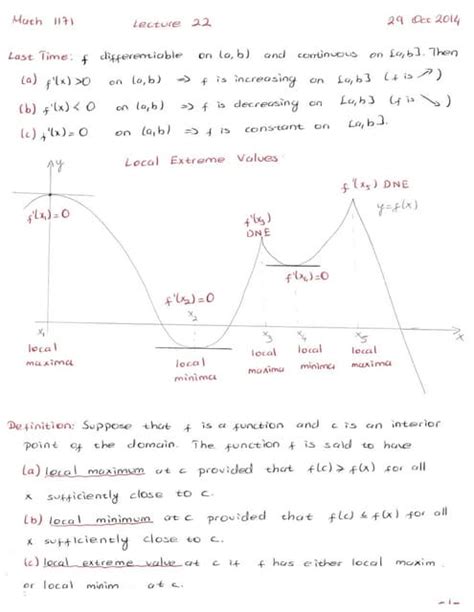 Math 1171 Lecture 22 29 Oct 2014
Last Time: f differentiable on (a,b) and continuous on [a,b]. Then
(a) f'(x)>0 on (a,b) ⇒ f is increasing on [a,b] (f is ↗)
(b) f'(x)<0 on (a,b) ⇒ f is decreasing on [a,b] (f is ↘)
(c) f'(x)=0 on (a,b) ⇒ f is constant on [a,b].
Local Extreme Values:
y
f'(x₅) DNE
y=f(x)
f'(x₁)=0
f'(x₃)
DNE
f'(x₄)=0
f'(x₂)=0
x₁ x₂ x₃ x₄ x₅ x
local maxima
local minima
local maxima
local minima
local maxima
Definition: Suppose that f is a function and c is an interior
point of the domain. The function f is said to have
(a) local maximum at c provided that f(c) ≥ f(x) for all
x sufficiently close to c.
(b) local minimum at c provided that f(c) ≤ f(x) for all
x sufficiently close to c.
(c) local extreme value at c if f has either local maxim
or local minim at c.
-1-